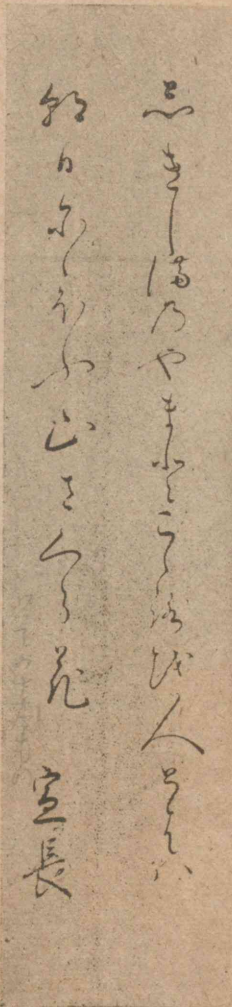 志きしまのやまとこゝろを人とはゝ
朝日にゝほふ山さくら花
宣長